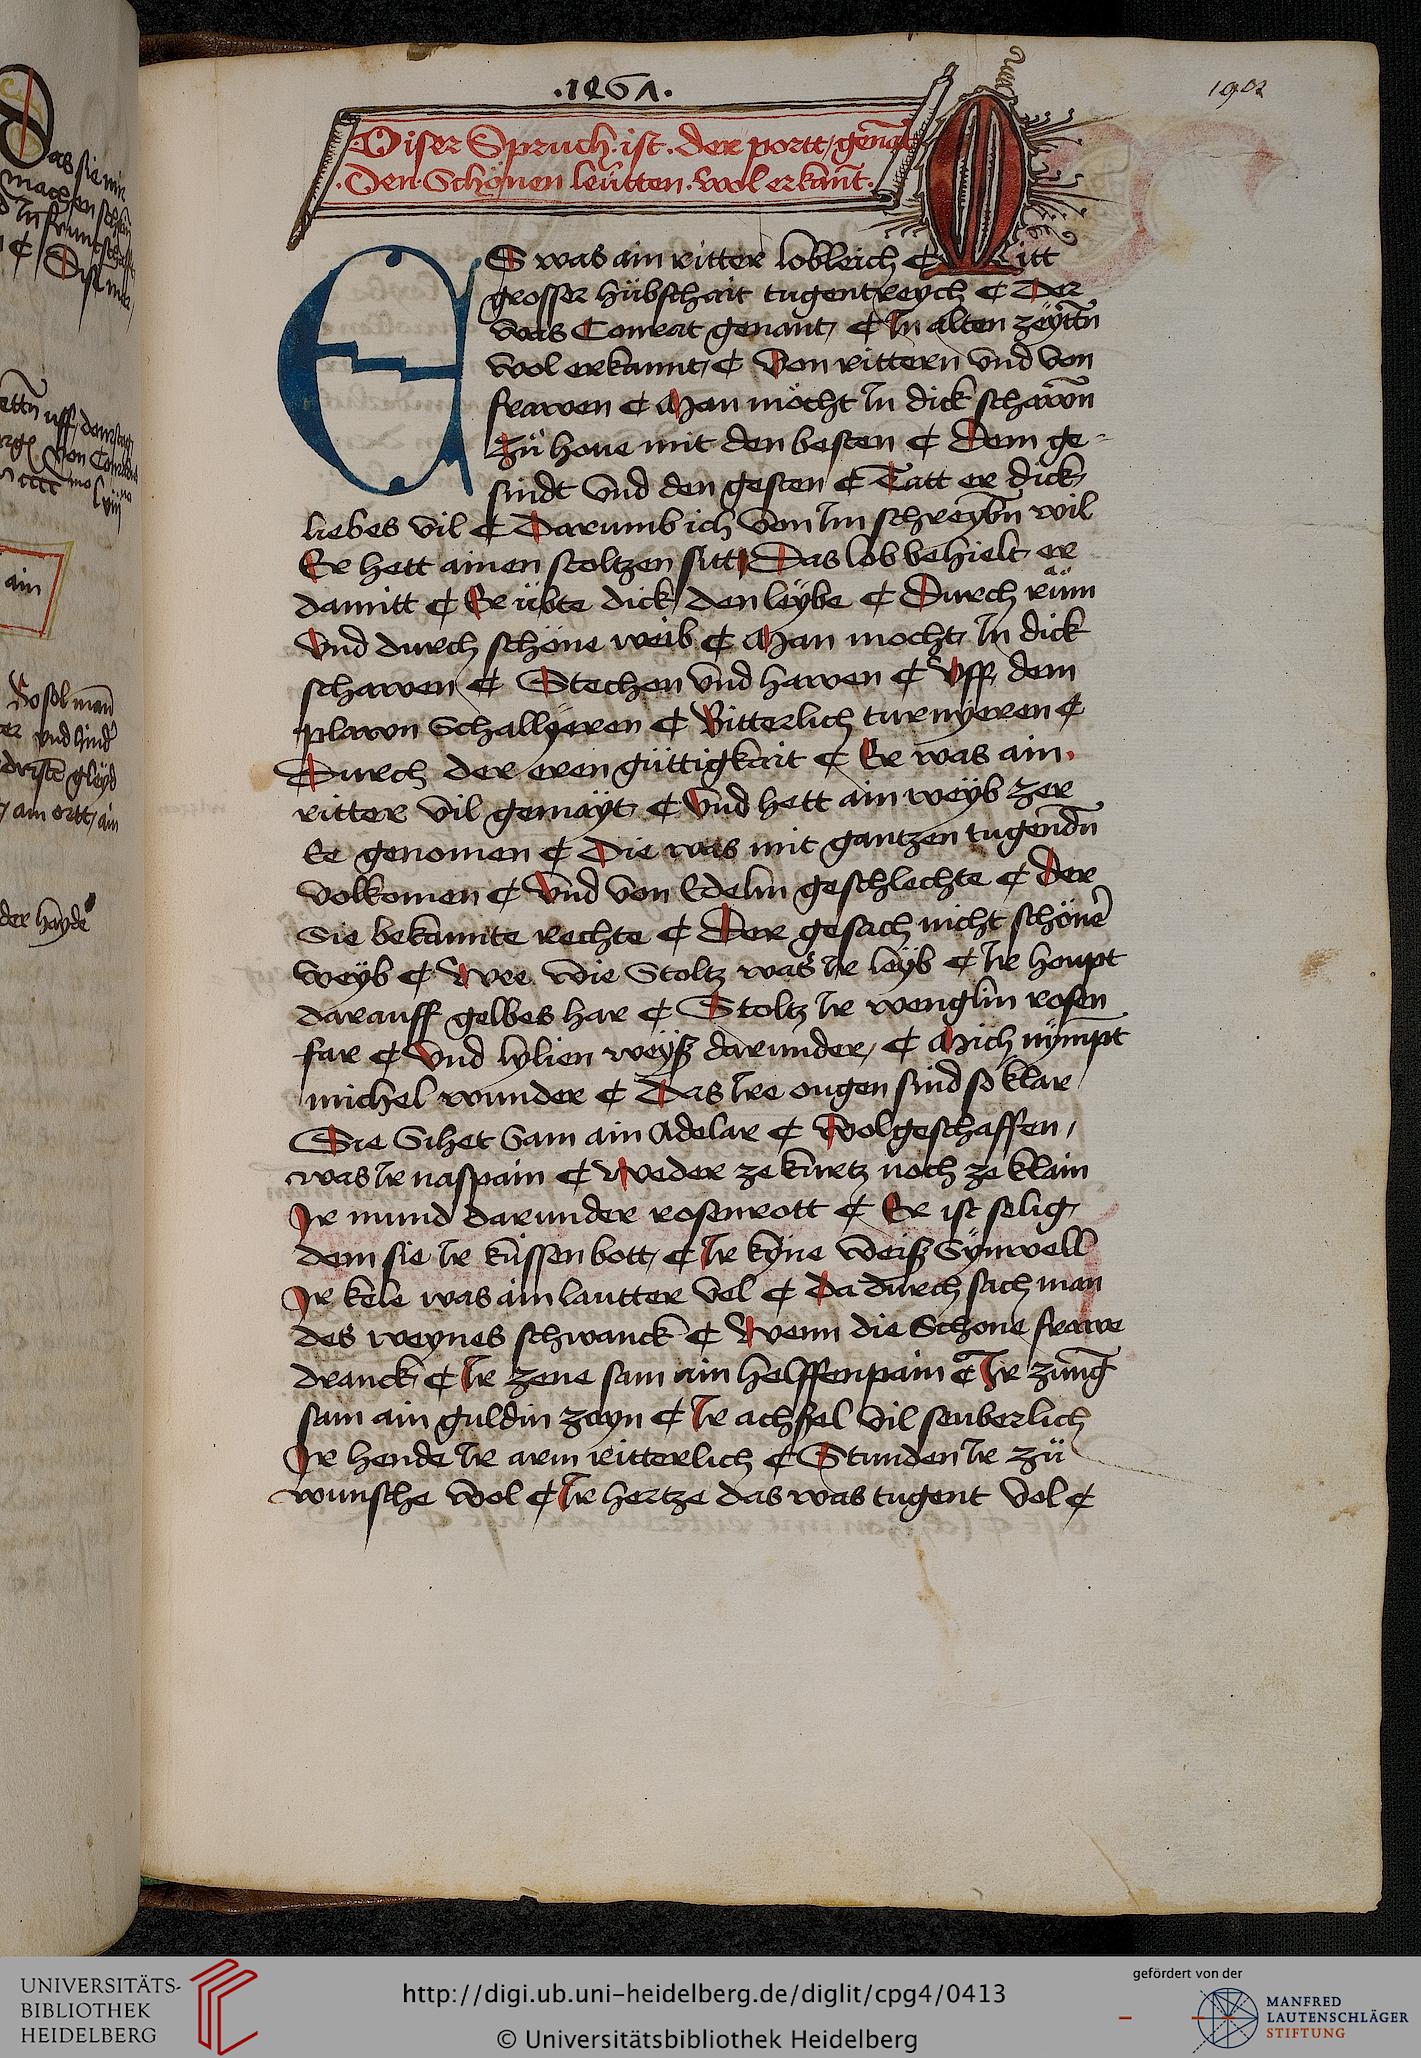 .1461.
192
Diser Spruch ist der portt genāt
Den Schönen leütten wol erkānt.
ES was ain ritter lobleich ¢ Mitt
grosser hübschait tugentreych ¢ Der
was Conrat genant, ¢ In alten zeyttn̄
wol erkannt, ¢ Von rittern vnd von
frawen ¢ Man möcht In dick schawn̄
Zü houe mit den besten ¢ Dem ge-
sindt vnd den gesten ¢ Tatt er dick
liebes vil ¢ Darumb ich von Im schreybn̄ wil
Er hett ainen stoltzen sitt Das lob behielt er
damitt ¢ Er übte dick den leybe ¢ Durch rüm
Vnd durch schöne weib ¢ Man mocht In dick
schawen ¢ Stechen vnd hawen ¢ Vff dem
plawn Schallyeren ¢ Ritterlich turnyeren ¢
Durch der eren güttigkait ¢ Er was ain
ritter vil gemayt ¢ Vnd hett ain weyb zer
Ee genomen ¢ Die was mit gantzen tugendn̄
volkomen ¢ Vnd von Edelm geschlechte ¢ Der
Sie bekannte rechte ¢ Der gesach nicht schöner
weyb ¢ Wee wie Stoltz was Ir leyb ¢ Ir houpt
darauff gelbes har ¢ Stoltz Ir wenglin rosen
far ¢ Vnd lylien weyß darunder, ¢ Mich nympt
michel wunder ¢ Das Ire ougen sind so klar
Sie Sihet Sam ain Adelar ¢ Wolgeschaffen,
was Ir naspain ¢ Weder ze kurtz noch ze klain
Ir mund darunder rosenrott ¢ Er ist selig,
dem sie Ir küssen bott, ¢ Ir kyne weiß Synwell
Ir kele was ain lautter vel ¢ Da durch sach man
des weynes schwanck ¢ Wenn die Schone frawe
dranck, ¢ Ir zene sam ain helffenpain ¢ Ir zung
sam ain guldin zayn ¢ Ir achssel vil seuberlich
Ir hende Ir arm ritterlich ¢ Stunden Ir zü
wunsche wol ¢ Ir hertze das was tugent vol ¢
Das sie mir
ain
So sol man̄
der hayde
UNIVERSITÄTS-
BIBLIOTHEK
HEIDELBERG
http://digi.ub.uni-heidelberg.de/diglit/cpg4/0413
© Universitätsbibliothek Heidelberg
gefördert von der
MANFRED
LAUTENSCHLÄGER
STIFTUNG